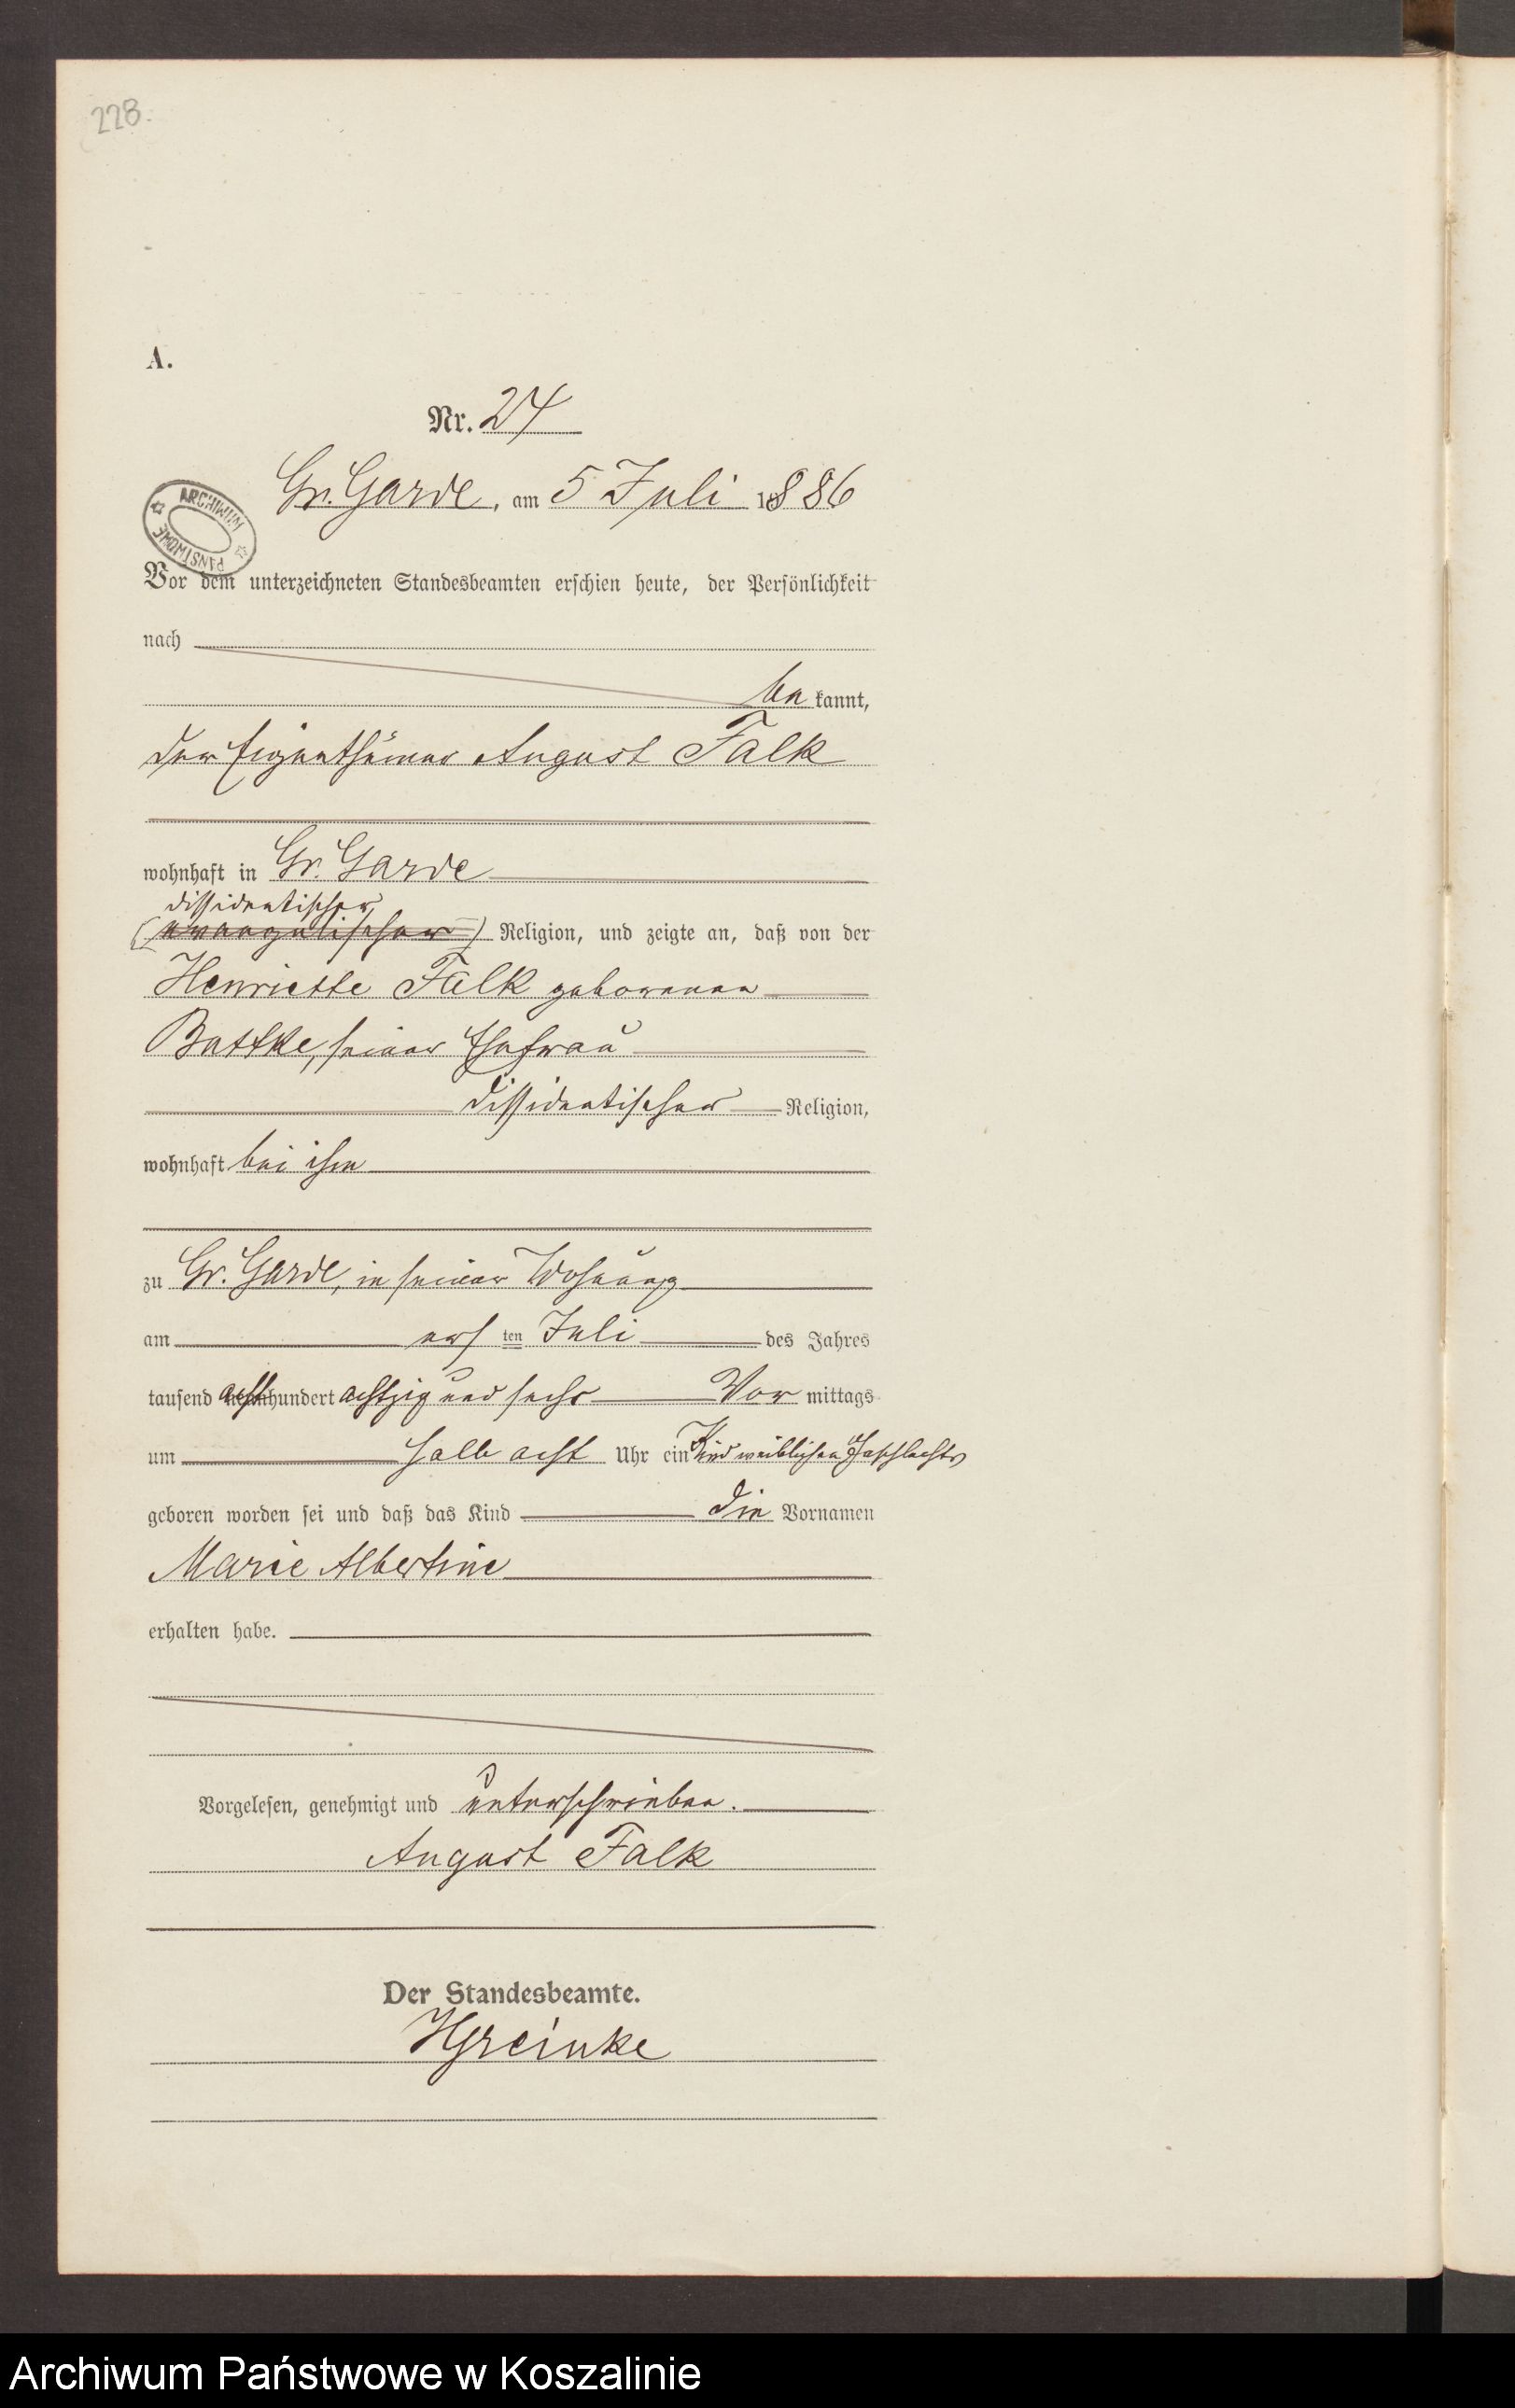 228.
A.
Nr. 24
Gr. Garde, am 5 Juli 1886
ARCHIWUM PAŃSTWOWE
Vor dem unterzeichneten Standesbeamten erschien heute, der Persönlichkeit
nach
be kannt,
der Eigenthümer August Falk
wohnhaft in Gr. Garde
dissidentischer
(evangelischer) Religion, und zeigte an, daß von der
Henriette Falk geborenen
Battke, seiner Ehefrau
dissidentischer Religion,
wohnhaft bei ihm
zu Gr. Garde, in seiner Wohnung
am ers ten Juli des Jahres
tausend acht hundert achtzig und sechs Vor mittags
um halb acht Uhr ein Kind weiblichen Geschlechts
geboren worden sei und daß das Kind die Vornamen
Marie Albertine
erhalten habe.
Vorgelesen, genehmigt und unterschrieben.
August Falk
Der Standesbeamte.
Archiwum Państwowe w Koszalinie